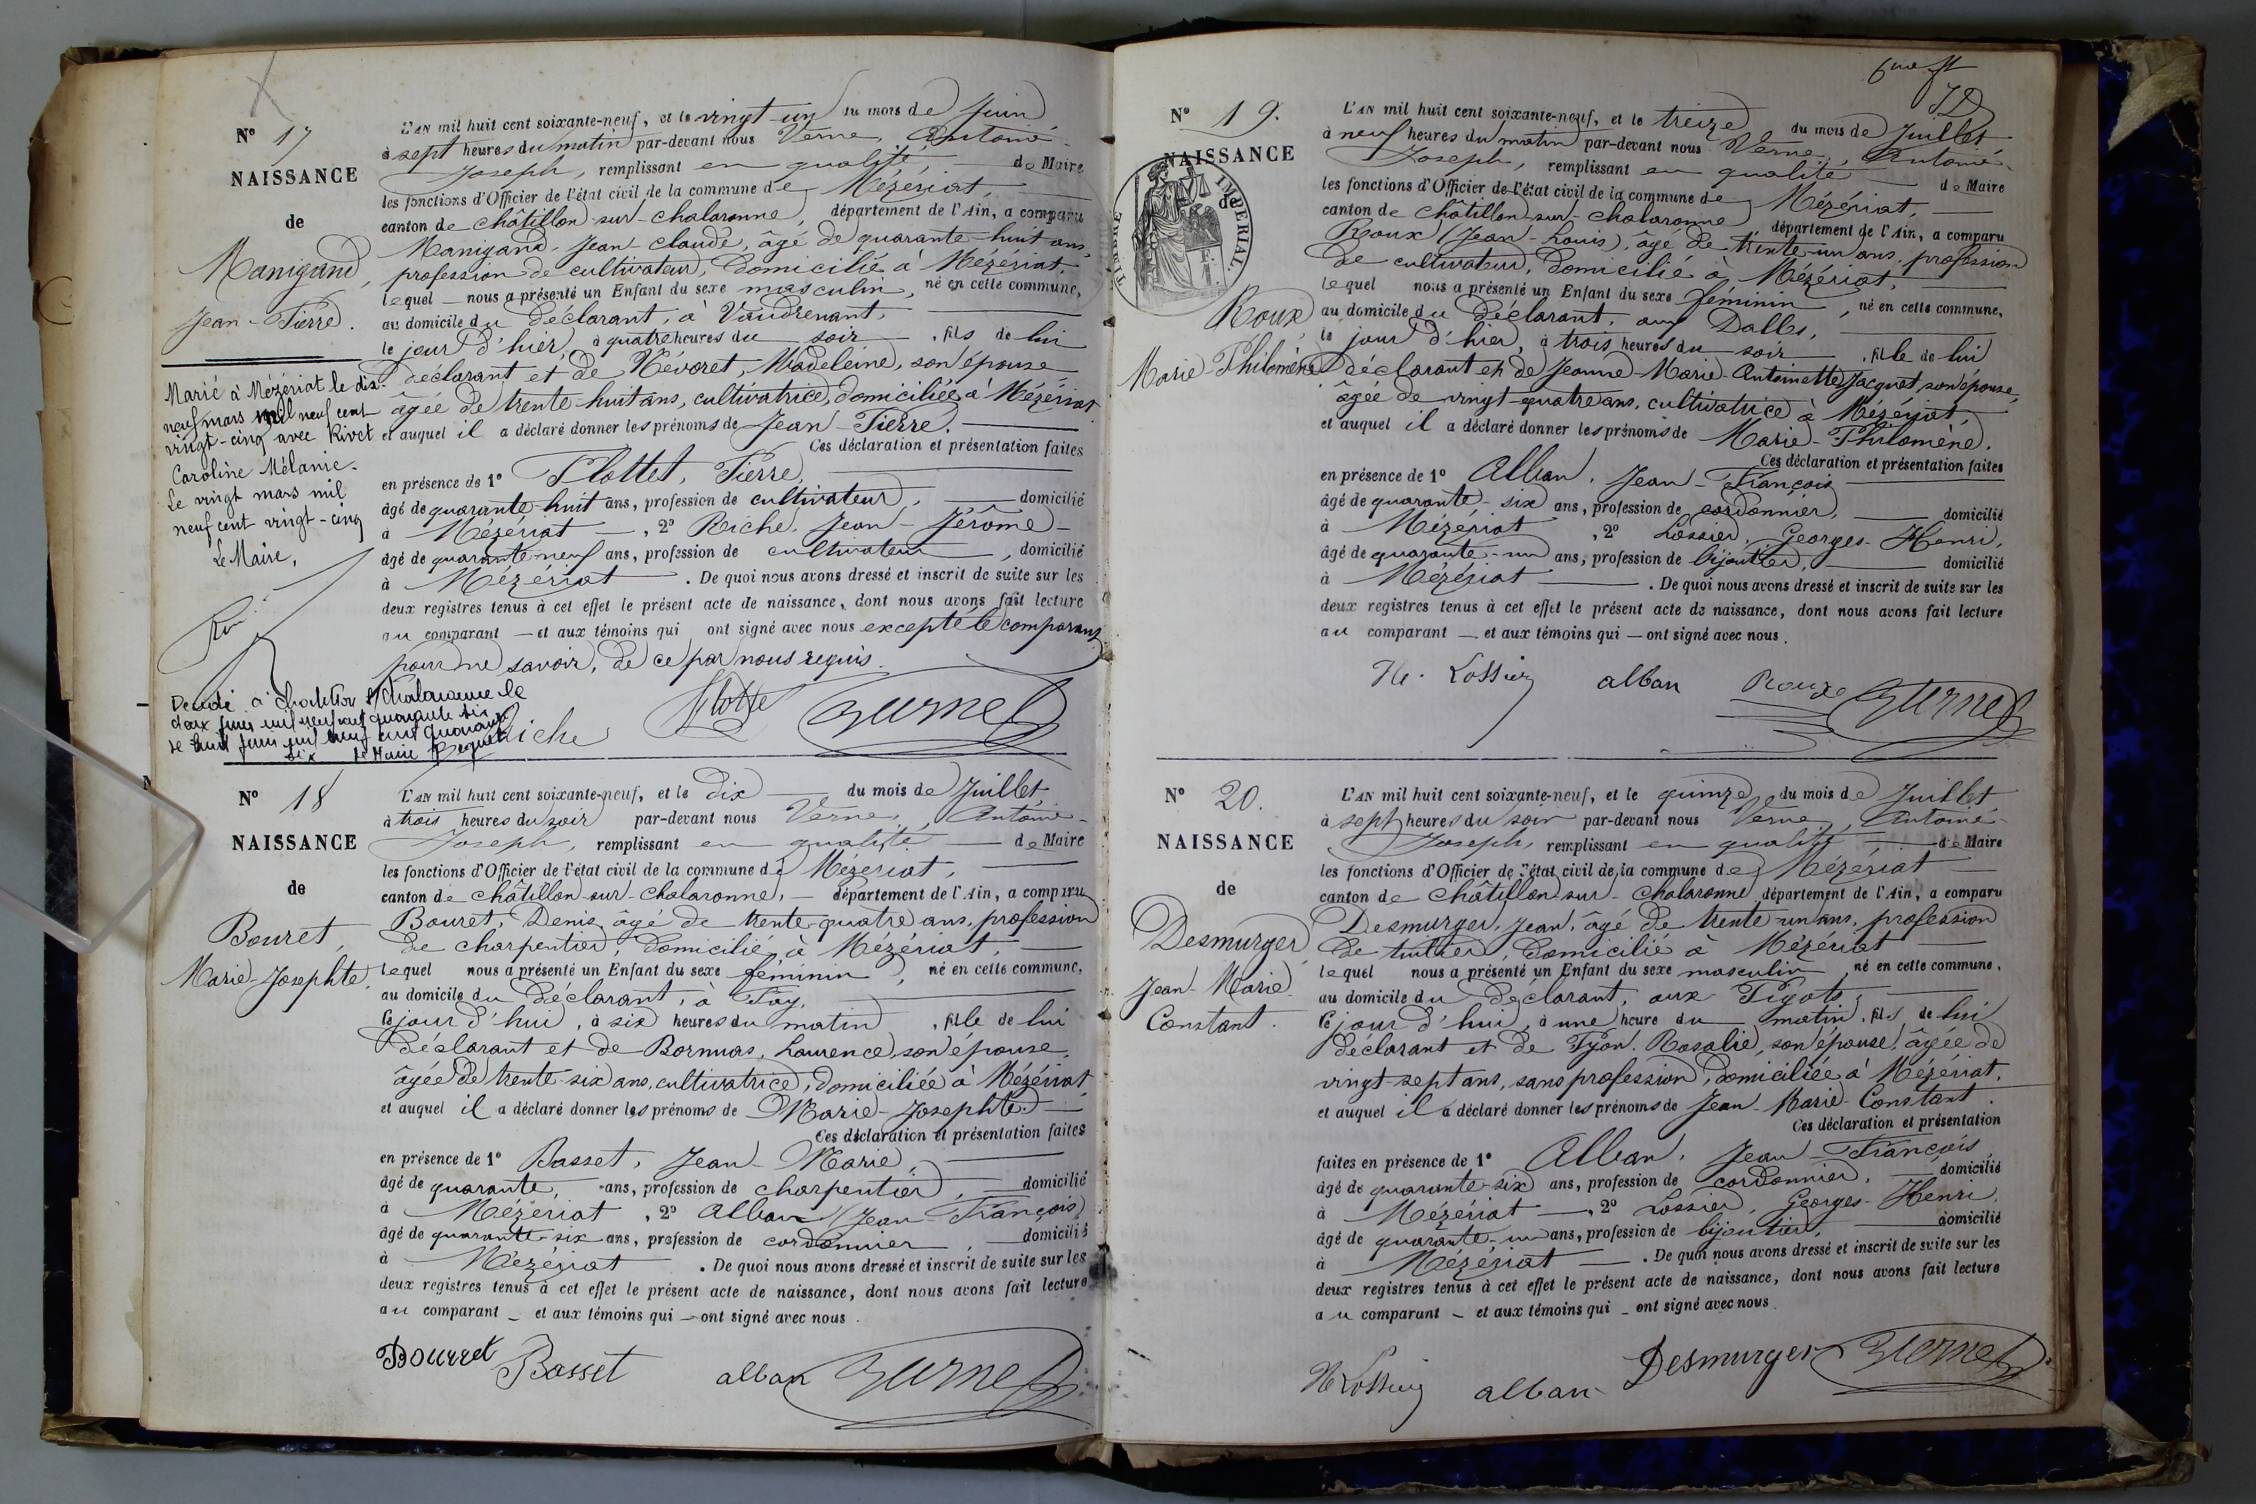 N° 17
NAISSANCE
de
Manigand,
Jean-Pierre.
Marié à Mézériat le dix-
neuf mars mil neuf cent
vingt-cinq avec Rivet
Caroline Mélanie.
Le vingt mars mil
neuf cent vingt-cinq
Le Maire,
L'AN mil huit cent soixante-neuf, et le vingt-un du mois de Juin
à sept heures du matin par-devant nous Verne, Antoine-
Joseph, remplissant en qualité, de Maire
les fonctions d'Officier de l'état civil de la commune de Mézériat,
canton de Châtillon-sur-Chalaronne, département de l'Ain, a comparu
Manigand, Jean-Claude, âgé de quarante-huit ans,
profession de cultivateur, domicilié à Mézériat,
lequel nous a présenté un Enfant du sexe masculin, né en cette commune,
au domicile du déclarant, à Vaudrenant,
le jour d'hier, à quatre heures du soir, fils de lui
déclarant et de Névoret, Madeleine, son épouse
âgée de trente-huit ans, cultivatrice, domiciliée à Mézériat
et auquel il a déclaré donner les prénoms de Jean-Pierre.
Ces déclaration et présentation faites
en présence de 1° Flottet, Pierre,
âgé de quarante-huit ans, profession de cultivateur, domicilié
à Mézériat, 2° Riche, Jean-Jérôme
âgé de quarante-neuf ans, profession de cultivateur, domicilié
à Mézériat. De quoi nous avons dressé et inscrit de suite sur les
deux registres tenus à cet effet le présent acte de naissance, dont nous avons fait lecture
au comparant — et aux témoins qui ont signé avec nous excepté le comparant
pour ne savoir, de ce par nous requis.
Décédé à Chatillon s/ Chalaronne le
deux juin mil neuf cent quarante six
le huit juin mil neuf cent quarante
six Le Maire
Riche
Verne
N° 18
NAISSANCE
de
Bouret,
Marie-Josephte.
L'AN mil huit cent soixante-neuf, et le dix du mois de Juillet
à trois heures du soir par-devant nous Verne, Antoine-
Joseph, remplissant en qualité de Maire
les fonctions d'Officier de l'état civil de la commune de Mézériat,
canton de Châtillon-sur-Chalaronne, département de l'Ain, a comparu
Bouret, Denis, âgé de trente-quatre ans, profession
de charpentier, domicilié à Mézériat,
lequel nous a présenté un Enfant du sexe féminin, né en cette commune,
au domicile du déclarant, à Fay,
le jour d'hui, à six heures du matin, fille de lui
déclarant et de Bornuas, Laurence, son épouse,
âgée de trente-six ans, cultivatrice, domiciliée à Mézériat
et auquel il a déclaré donner les prénoms de Marie-Josephte.
Ces déclaration et présentation faites
en présence de 1° Basset, Jean-Marie,
âgé de quarante, ans, profession de charpentier, domicilié
à Mézériat, 2° Alban (Jean-François)
âgé de quarante-six ans, profession de cordonnier, domicilié
à Mézériat. De quoi nous avons dressé et inscrit de suite sur les
deux registres tenus à cet effet le présent acte de naissance, dont nous avons fait lecture
au comparant — et aux témoins qui — ont signé avec nous.
Bourret Basset alban Verne
6me ft
N° 19.
NAISSANCE
de
TIMBRE IMPERIAL.
Roux,
Marie-Philomène
L'AN mil huit cent soixante-neuf, et le treize du mois de Juillet
à neuf heures du matin par-devant nous Verne, Antoine-
Joseph, remplissant en qualité de Maire
les fonctions d'Officier de l'état civil de la commune de Mézériat,
canton de Châtillon-sur-Chalaronne, département de l'Ain, a comparu
Roux (Jean-Louis), âgé de trente-un ans, profession
de cultivateur, domicilié à Mézériat,
lequel nous a présenté un Enfant du sexe féminin, né en cette commune,
au domicile du déclarant, aux Dalles,
le jour d'hier, à trois heures du soir, fille de lui
déclarant et de Jeanne-Marie-Antoinette Jacquet, son épouse,
âgée de vingt-quatre ans, cultivatrice à Mézériat,
et auquel il a déclaré donner les prénoms de Marie-Philomène.
Ces déclaration et présentation faites
en présence de 1° Alban, Jean-François
âgé de quarante-six ans, profession de cordonnier, domicilié
à Mézériat, 2° Lossier, Georges-Henri,
âgé de quarante-un ans, profession de bijoutier, domicilié
à Mézériat. De quoi nous avons dressé et inscrit de suite sur les
deux registres tenus à cet effet le présent acte de naissance, dont nous avons fait lecture
au comparant — et aux témoins qui — ont signé avec nous.
H. Lossier alban Roux Verne
N° 20.
NAISSANCE
de
Desmurger,
Jean-Marie-
Constant.
L'AN mil huit cent soixante-neuf, et le quinze du mois de Juillet
à sept heures du soir par-devant nous Verne, Antoine-
Joseph, remplissant en qualité de Maire
les fonctions d'Officier de l'état civil de la commune de Mézériat
canton de Châtillon-sur-Chalaronne, département de l'Ain, a comparu
Desmurger, Jean, âgé de trente-un ans, profession
de tuilier, domicilié à Mézériat
lequel nous a présenté un Enfant du sexe masculin, né en cette commune,
au domicile du déclarant, aux Pigots,
le jour d'hui, à une heure du matin, fils de lui
déclarant et de Tyon, Rosalie, son épouse, âgée de
vingt-sept ans, sans profession, domiciliée à Mézériat,
et auquel il a déclaré donner les prénoms de Jean-Marie-Constant.
Ces déclaration et présentation
faites en présence de 1° Alban, Jean-François,
âgé de quarante-six ans, profession de cordonnier, domicilié
à Mézériat, 2° Lossier, Georges-Henri,
âgé de quarante-un ans, profession de bijoutier, domicilié
à Mézériat. De quoi nous avons dressé et inscrit de suite sur les
deux registres tenus à cet effet le présent acte de naissance, dont nous avons fait lecture
au comparant — et aux témoins qui — ont signé avec nous.
H Lossier alban Desmurger Verne